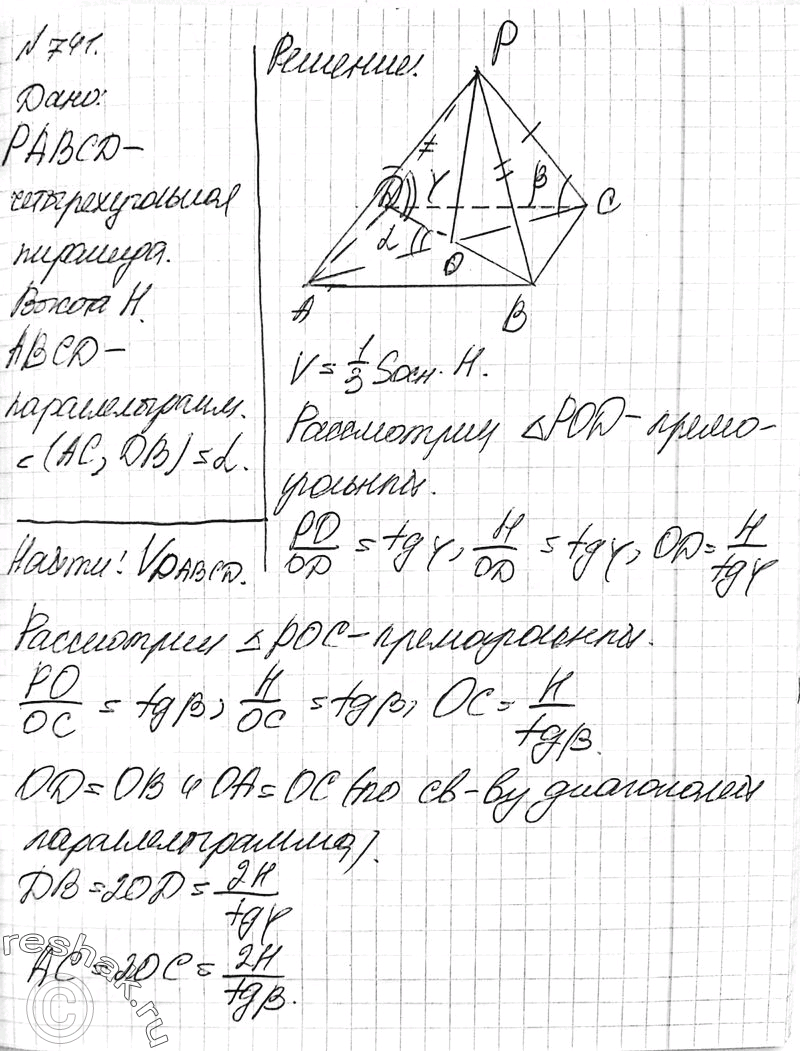 N 741.
Дано:
PABCD –
четырехугольная
пирамида.
Высота H.
ABCD –
параллелограмм.
∠(AC, DB) = α.
Найти: V_PABCD.
Решение.
P
D
γ
β
C
α
O
A
B
V = 1/3 Sосн · H.
Рассмотрим △POD – прямо-
угольный.
PO/OD = tgγ, H/OD = tgγ, OD = H/tgγ
Рассмотрим △POC – прямоугольный.
PO/OC = tgβ, H/OC = tgβ, OC = H/tgβ.
OD = OB и OA = OC (по св-ву диагоналей
параллелограмма).
DB = 2OD = 2H/tgγ
AC = 2OC = 2H/tgβ.
reshak.ru
©